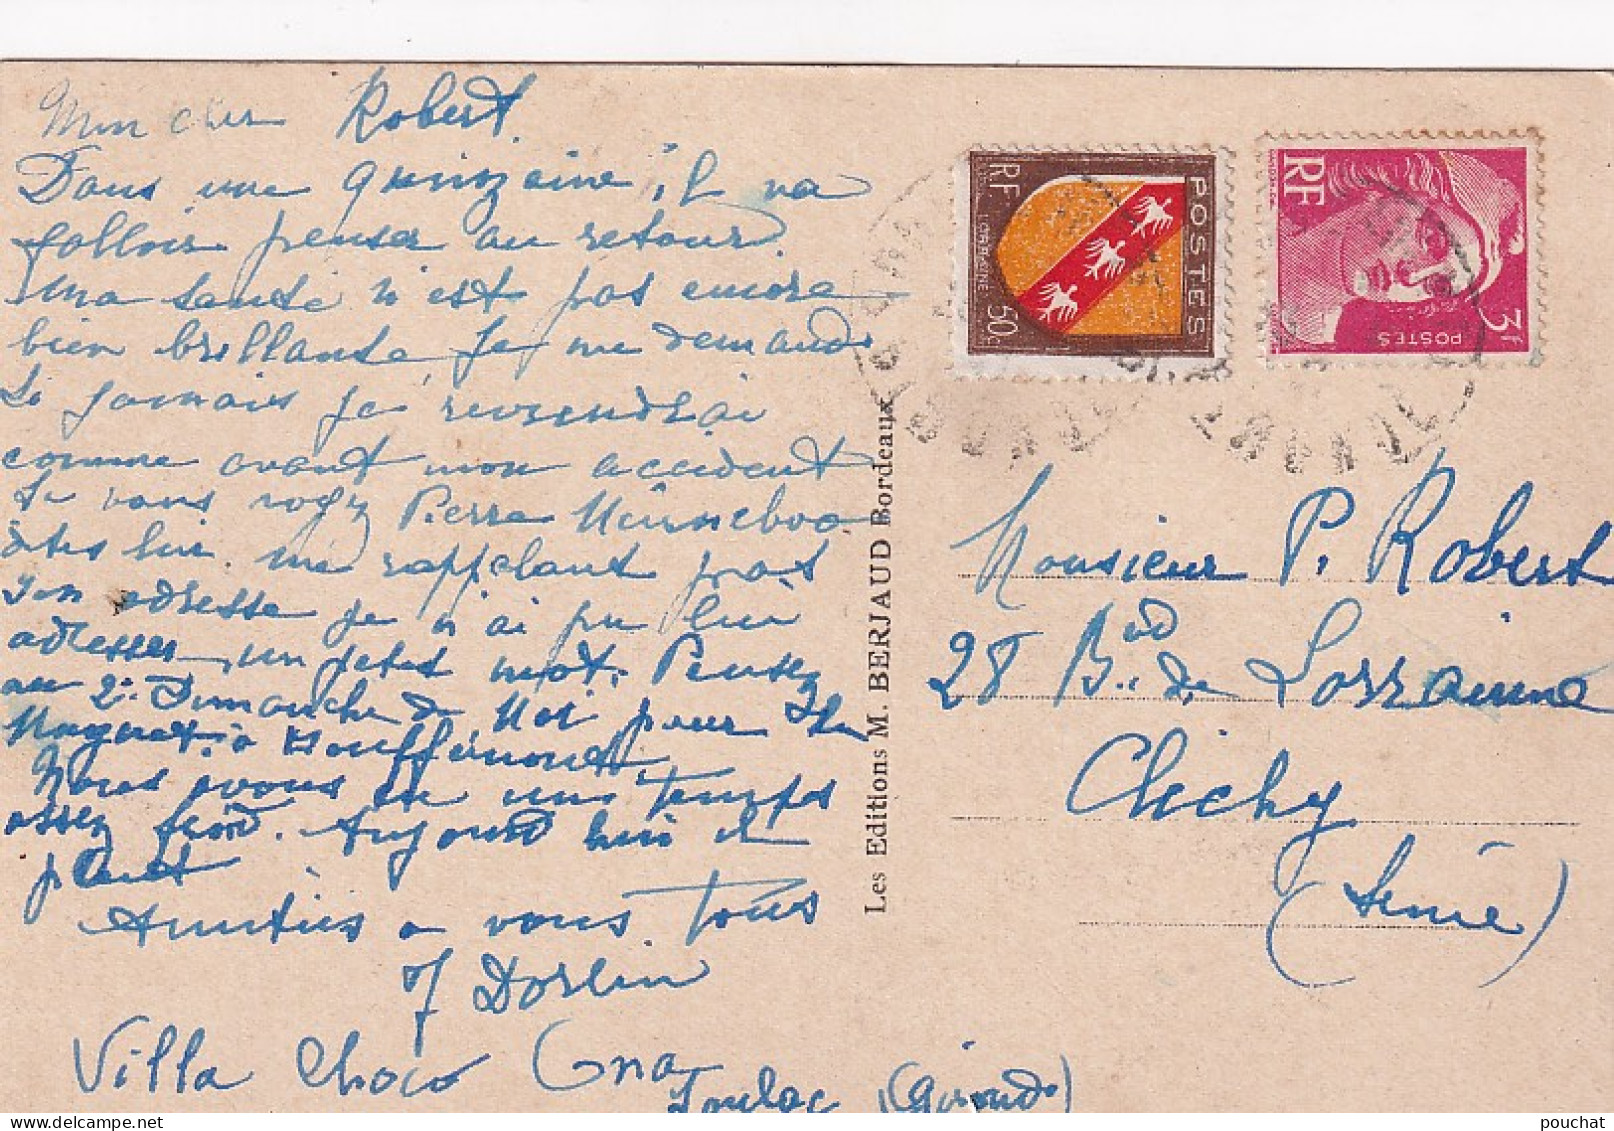 Mon cher Robert.
Dans une quinzaine il va
falloir penser au retour.
Ma santé n'est pas encore
bien brillante, je me demande
si jamais je reviendrai
comme avant mon accident
Si vous voyez Pierre
dites lui me rappelant pas
son adresse je n'ai pu lui
adresser un petit mot. Pensez
au 2e Dimanche de Mai pour
à Bouffémont.
Nous avons eu un temps
assez froid. Aujourd'hui il
pleut
Amitiés a vous Tous
Dorlin
Villa Choco Gna
Soulac (Gironde)
Les Editions M. BERJAUD Bordeaux
RF
POSTES
LORRAINE
50c
RF
POSTES
3f
Monsieur P. Robert
28 Bvd de Lorraine
Clichy
(Seine)
pouchat